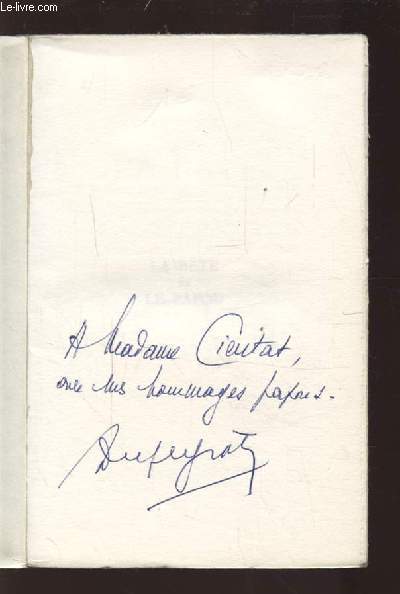 Le-livre.com
A Madame Cieutat,
avec mes hommages papous.
Dupeyrat